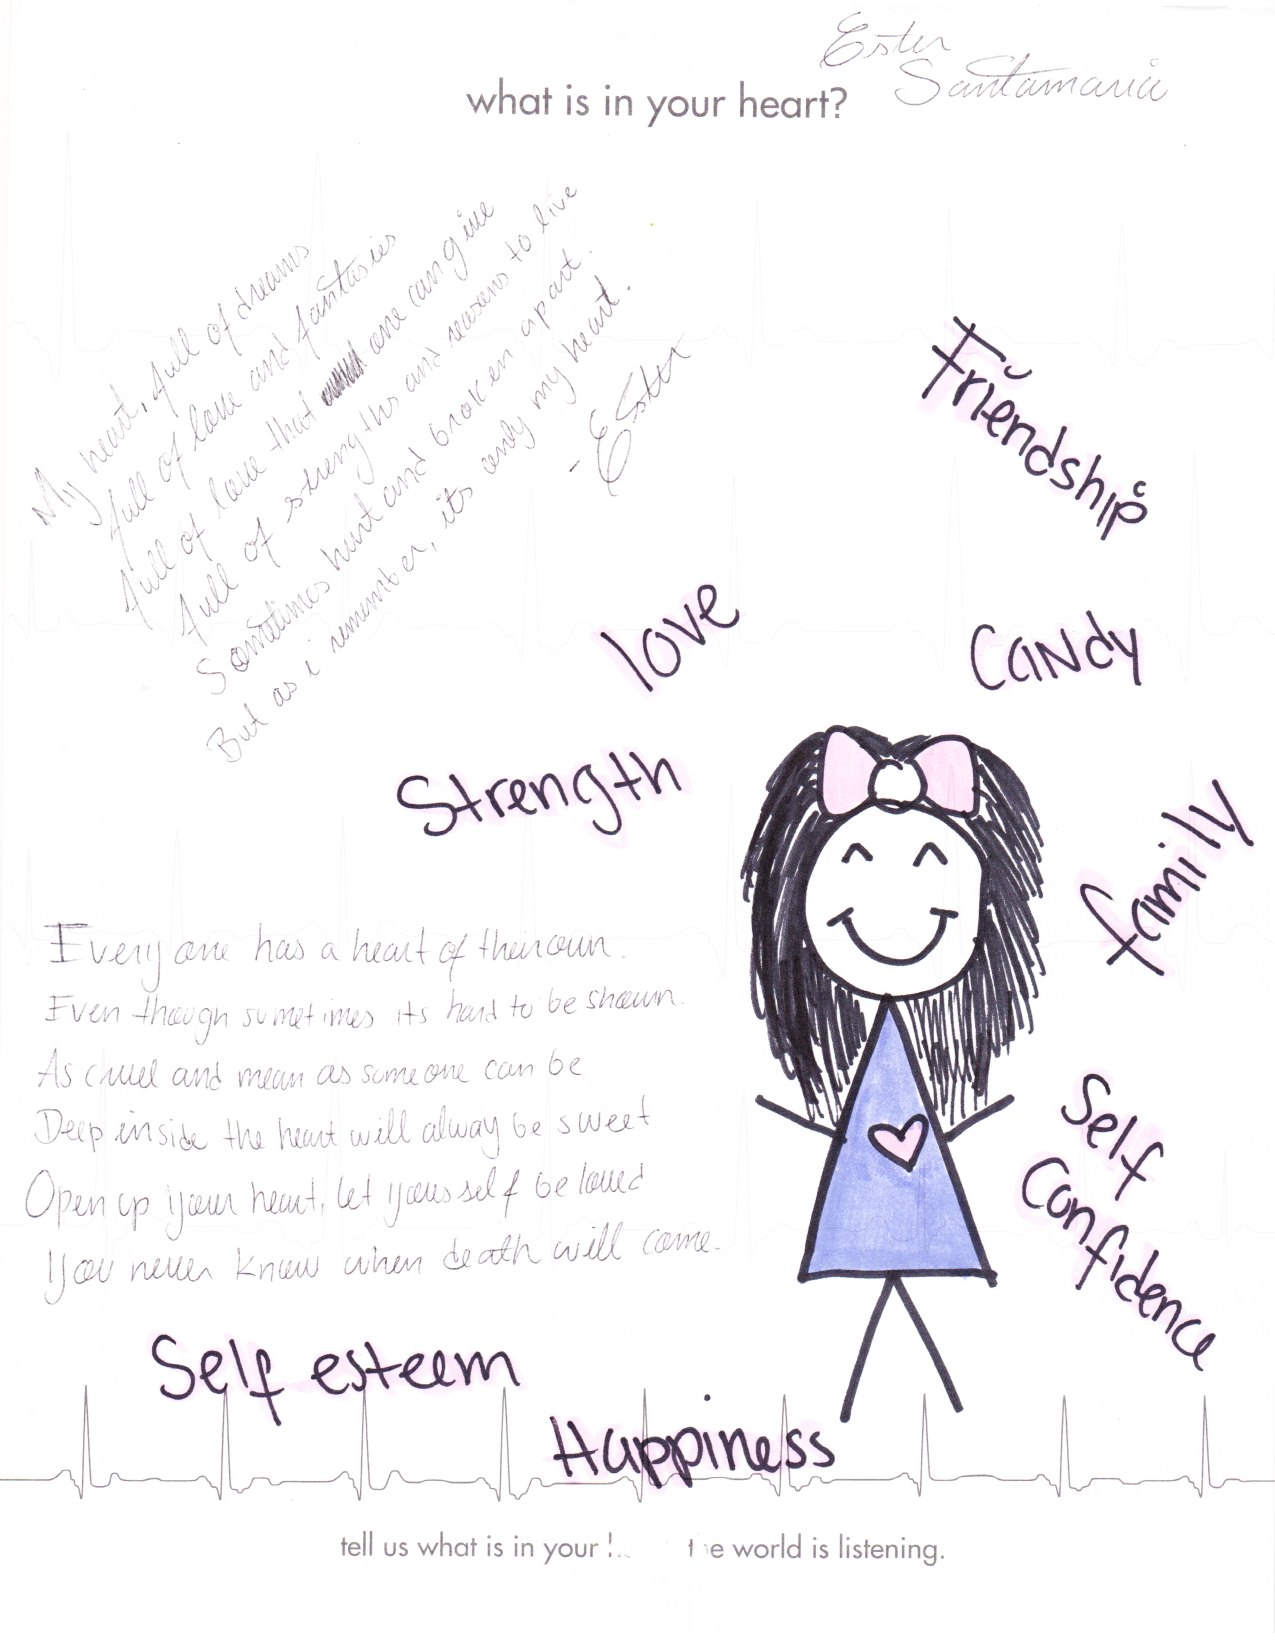 Ester
Santamaria
what is in your heart?
My heart, full of dreams
full of love and fantasies
full of love that one can give
full of strengths and reasons to live
Sometimes hurt and broken apart.
But as i remember, its only my heart.
- Ester
Friendship
love
Candy
Strength
family
Everyone has a heart of their own.
Even though sometimes its hard to be shown.
As cruel and mean as someone can be
Deep inside the heart will alway be sweet
Open up your heart, let yourself be loved
You never know when death will come.
Self
Confidence
Self esteem
Happiness
tell us what is in your e world is listening.